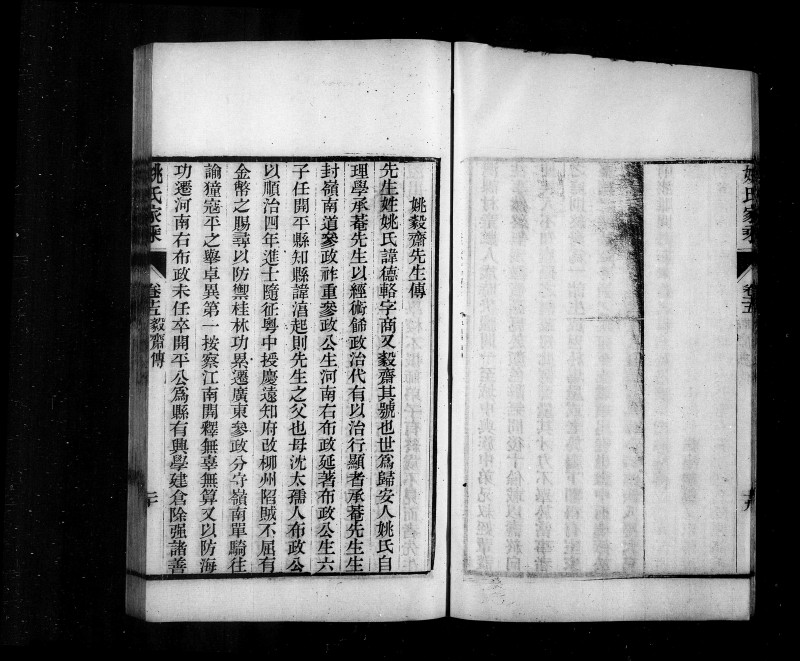 姚氏家乘
卷十五
十九
姚毅齋先生傳
先生姓姚氏諱德輅字商又毅齋其號也世爲歸安人姚氏自
理學承菴先生以經術飾政治代有以治行顯者承菴先生生
封嶺南道參政祚重參政公生河南右布政延著布政公生六
子任開平縣知縣諱淯起則先生之父也母沈太孺人布政公
以順治四年進士隨征粤中授慶遠知府改柳州陷賊不屈有
金幣之賜尋以防禦桂林功累遷廣東參政分守嶺南單騎往
諭獞寇平之舉卓異第一按察江南開釋無辜無算又以防海
功遷河南右布政未任卒開平公爲縣有興學建倉除强諸善
姚氏家乘
卷十五毅齋傳
二十